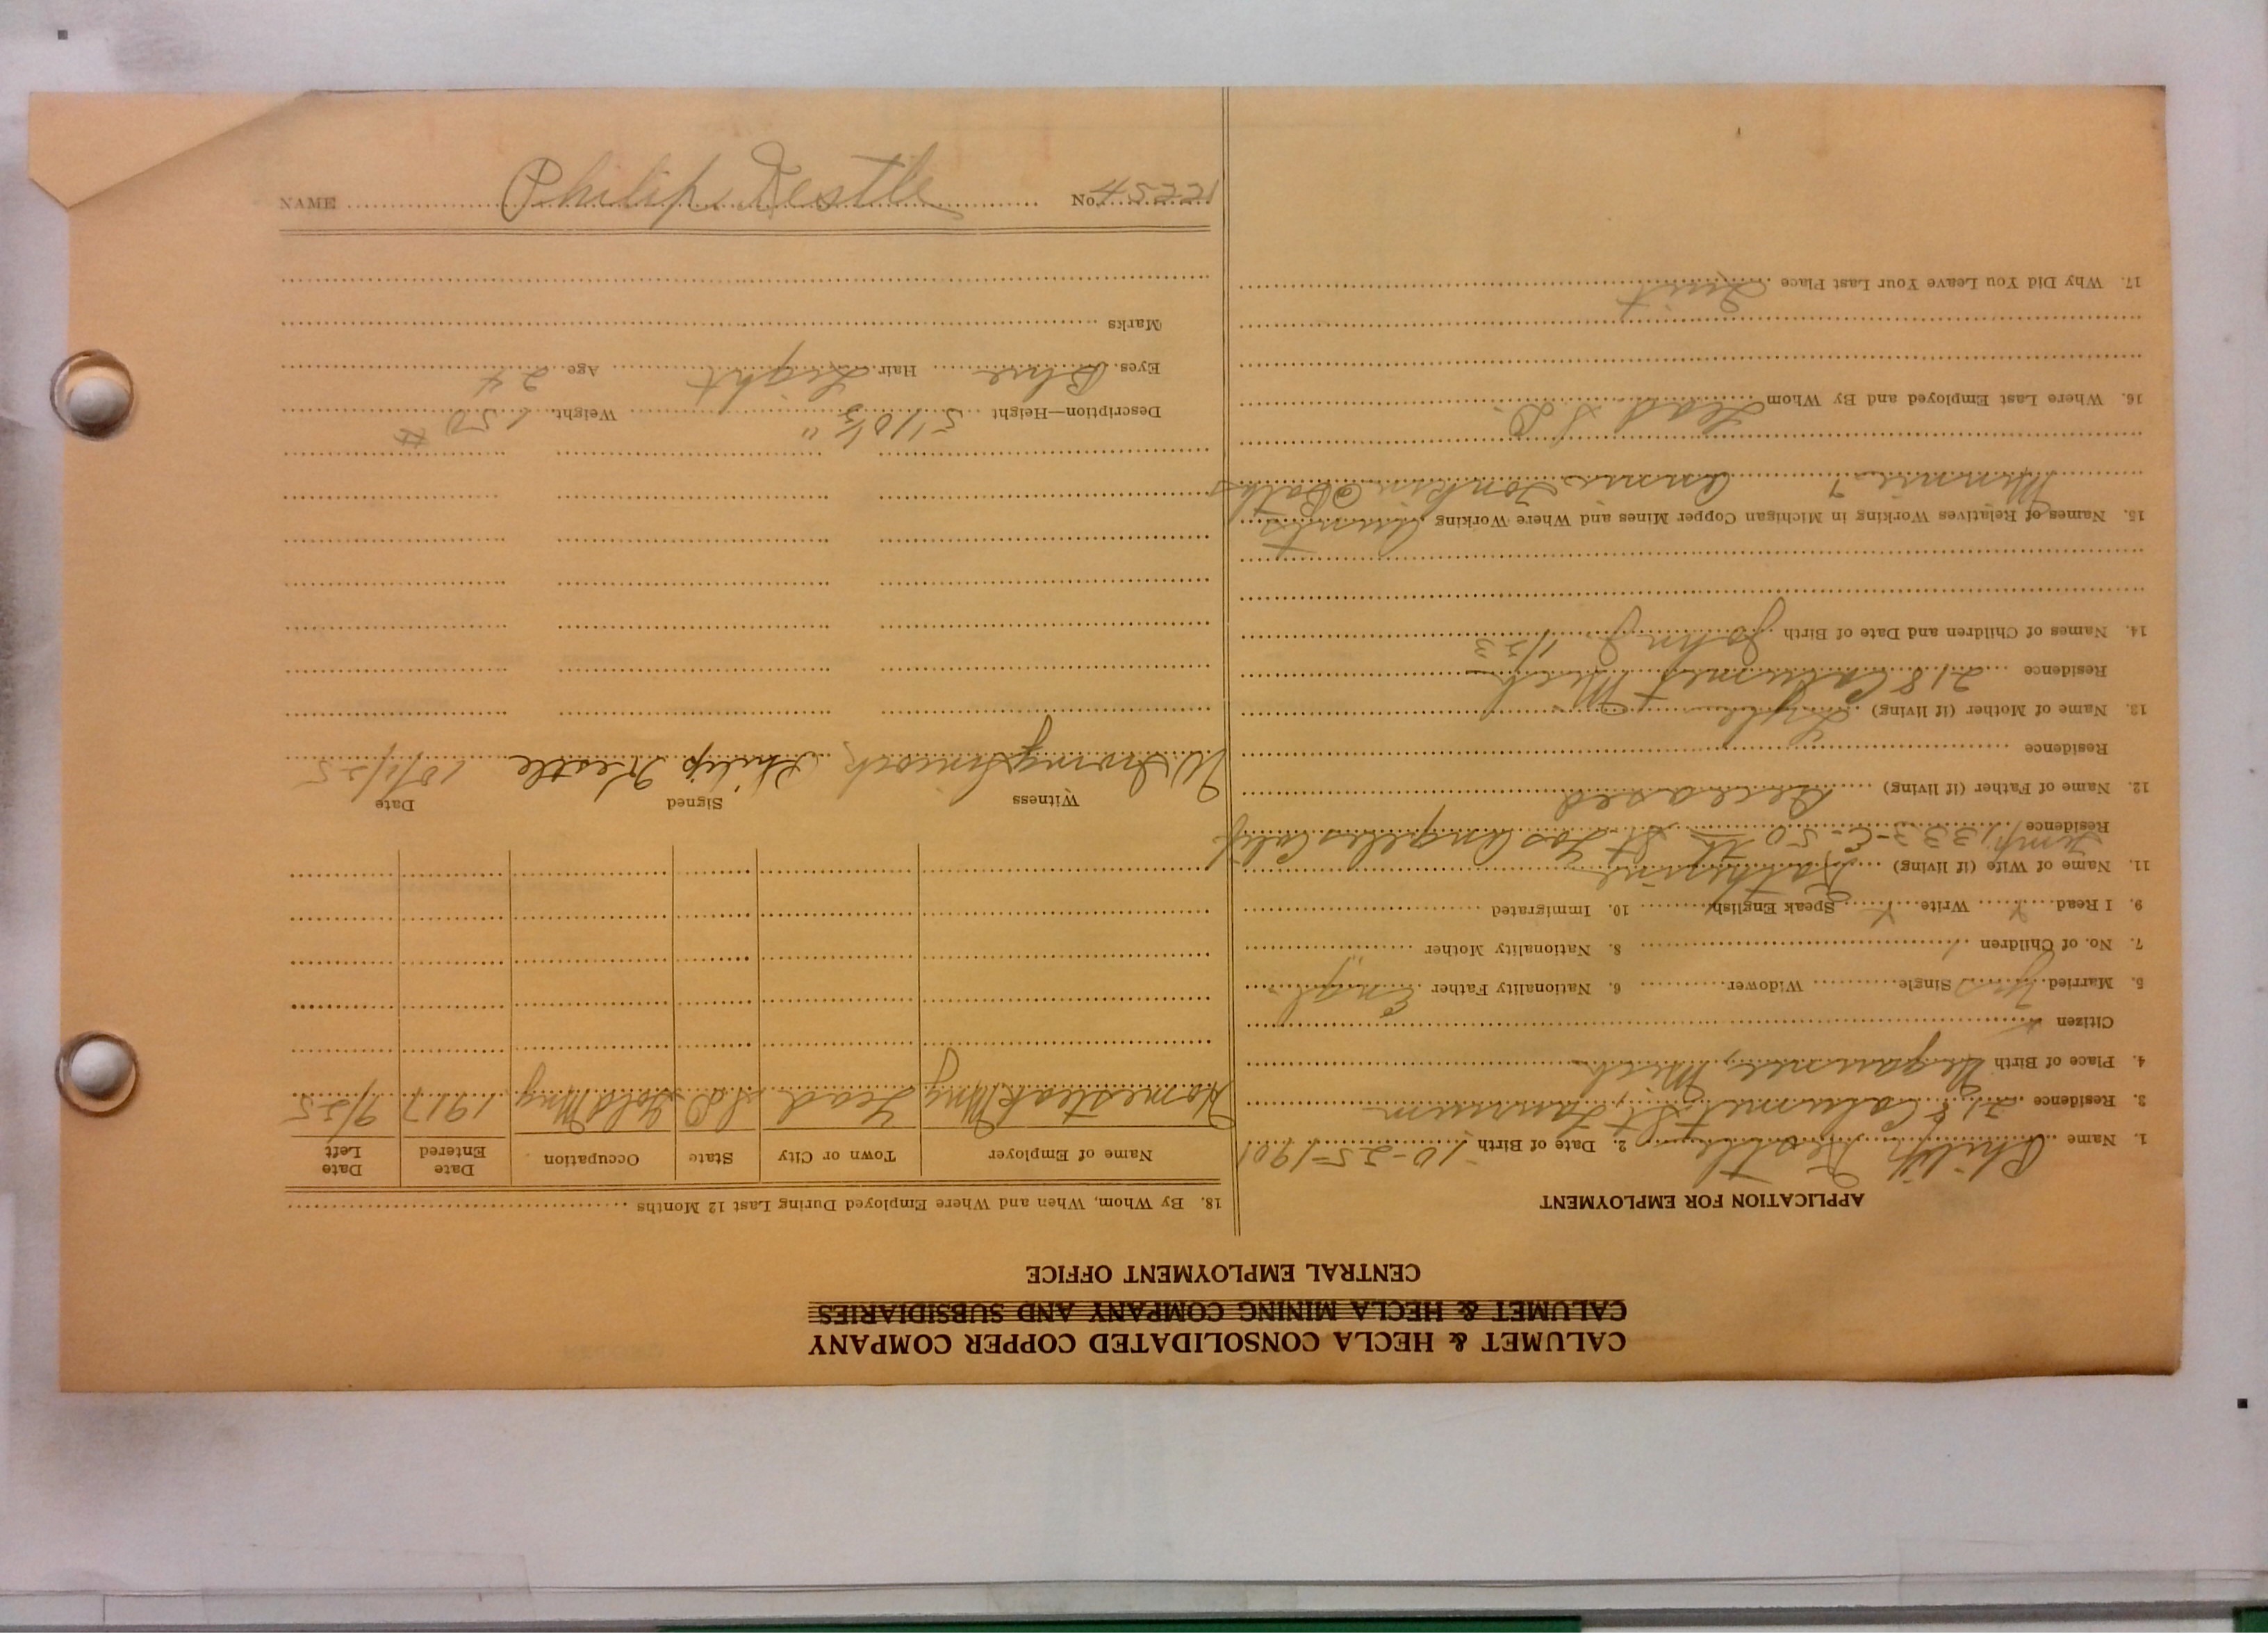 CALUMET & HECLA CONSOLIDATED COPPER COMPANY
CALUMET & HECLA MINING COMPANY AND SUBSIDIARIES
CENTRAL EMPLOYMENT OFFICE
APPLICATION FOR EMPLOYMENT
1. Name Philip Nestle 2. Date of Birth 10-25-1901
3. Residence 218 Calumet St, Laurium
4. Place of Birth Negaunee, Mich
Citizen
5. Married Yes Single Widower 6. Nationality Father Engl
7. No. of Children 1 8. Nationality Mother "
9. I Read X Write X Speak English 10. Immigrated
11. Name of Wife (if living) Katherine
Residence Temp, 1333-E-50 th St Los Angeles Calif
12. Name of Father (if living) Deceased
Residence
13. Name of Mother (if living)
Residence 218 Calumet Mich
14. Names of Children and Date of Birth John J. 1/23
15. Names of Relatives Working in Michigan Copper Mines and Where Working Aunts
Minnie & Annie Tonkin
16. Where Last Employed and By Whom Lead S.D.
17. Why Did You Leave Your Last Place Quit
18. By Whom, When and Where Employed During Last 12 Months
Name of Employer Town or City State Occupation Date Entered Date Left
Homesteak Mng Lead S.D Gold Mng 1917 9/25
Witness Signed Date
Philip Nestle 10/1/25
Description—Height 5' 10 1/2" Weight 150 #
Eyes Blue Hair Light Age 24
Marks
NAME Philip Nestle No. 45221